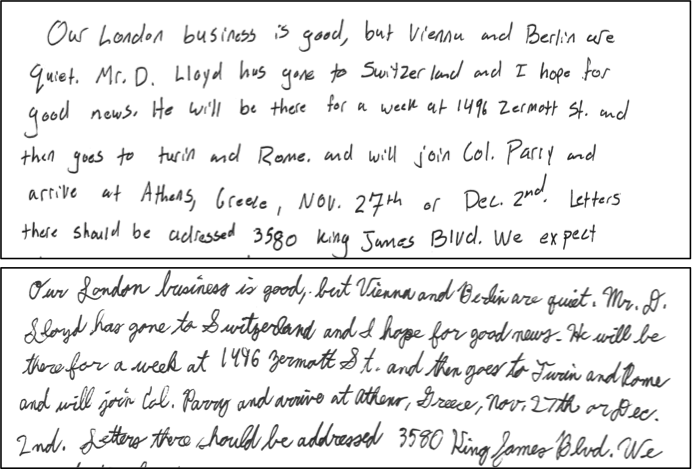 Our London business is good, but Vienna and Berlin are
quiet. Mr. D. Lloyd has gone to Switzerland and I hope for
good news. He will be there for a week at 1496 Zermott St. and
then goes to turin and Rome. and will join Col. Parry and
arrive at Athens, Greece, Nov. 27th or Dec. 2nd. Letters
there should be adressed 3580 King James Blvd. We expect
Our London business is good, but Vienna and Berlin are quiet. Mr. D.
Lloyd has gone to Switzerland and I hope for good news. He will be
there for a week at 1496 Zermott St. and then goes to Turin and Rome
and will join Col. Parry and arrive at Athens, Greece, Nov. 27th or Dec.
2nd. Letters there should be addressed 3580 King James Blvd. We